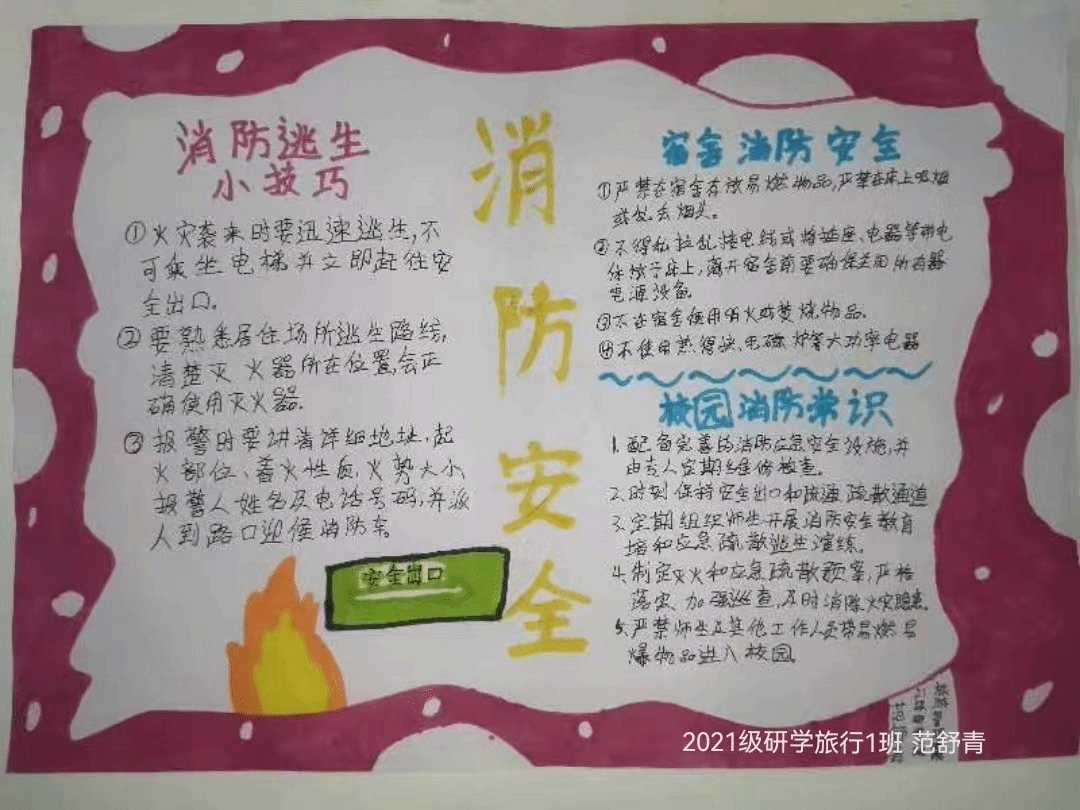 消防逃生
小技巧
①火灾袭来时要迅速逃生,不
可乘坐电梯并立即赶往安
全出口。
②要熟悉居住场所逃生路线,
清楚灭火器所在位置,会正
确使用灭火器.
③报警时要讲清详细地址、起
火部位、着火性质,火势大小,
报警人姓名及电话号码,并派
人到路口迎候消防车。
安全出口
消
防
安
全
宿舍消防安全
①严禁在宿舍存放易燃物品,严禁在床上吸烟
或乱丢烟头。
②不得私拉乱接电线或将插座、电器等带电
体放于床上,离开宿舍前要确保关闭所有器
电源设备
③不在宿舍使用明火或焚烧物品.
④不使用热得快、电磁炉等大功率电器
校园消防常识
1.配备完善的消防应急安全设施,并
由专人定期维修检查.
2.时刻保持安全出口和疏通疏散通道
3.定期组织师生开展消防安全教育
培和应急疏散逃生演练.
4.制定灭火和应急疏散预案,严格
落实、加强巡查,及时消除火灾隐患.
5.严禁师生及其他工作人员带易燃易
爆物品进入校园.
2021级研学旅行1班 范舒青